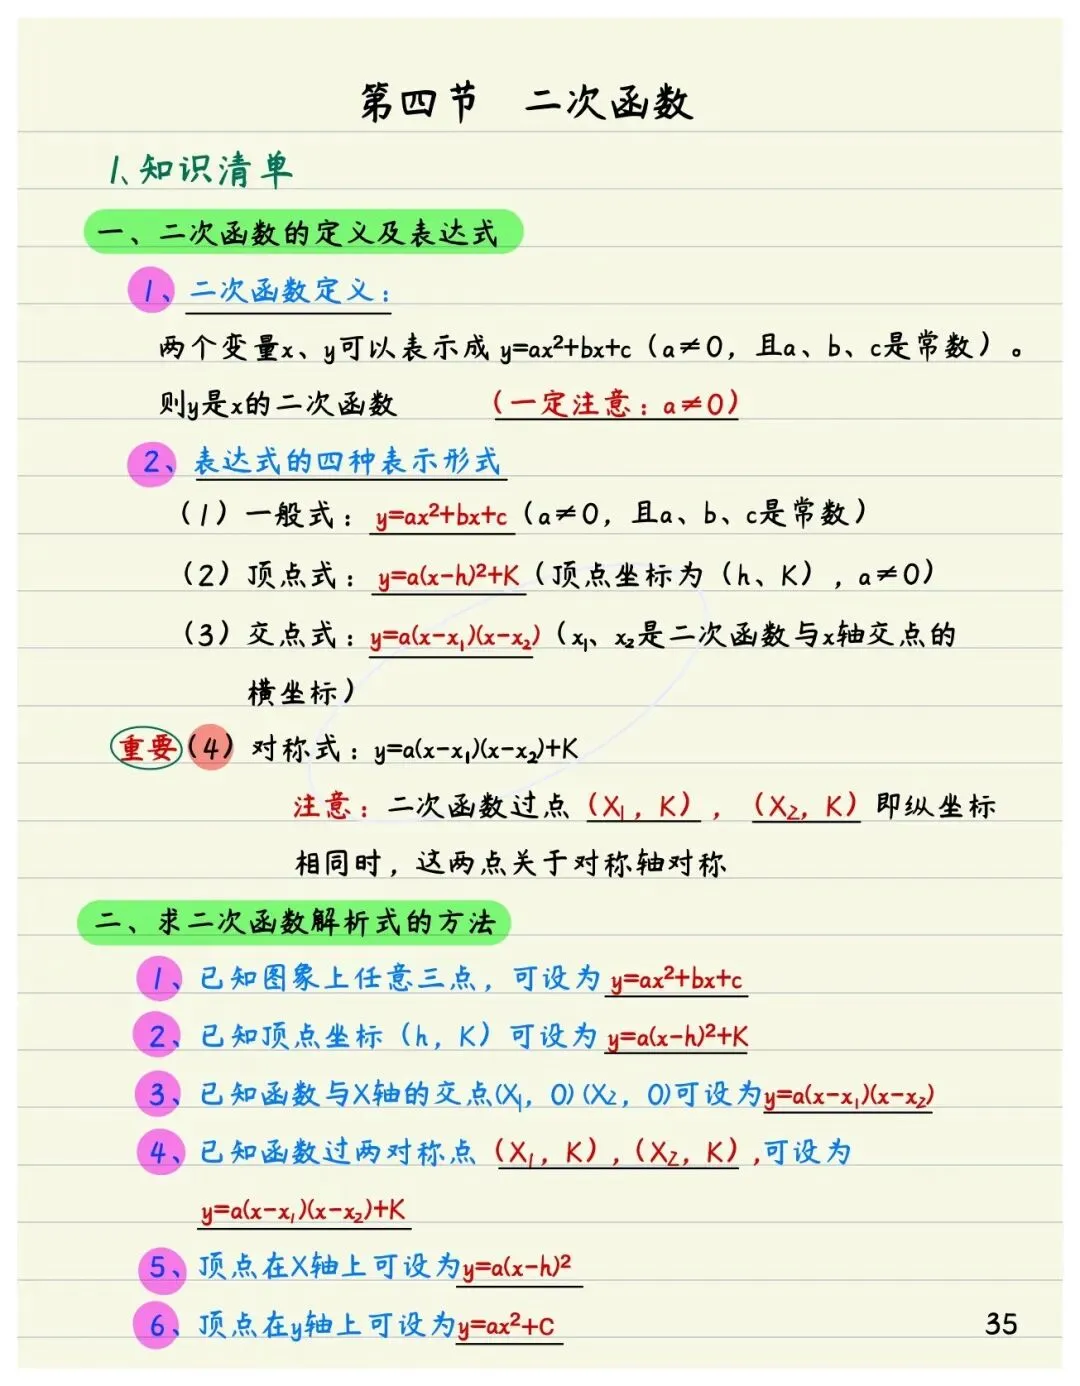 第四节 二次函数
1、知识清单
一、二次函数的定义及表达式
1、二次函数定义：
两个变量x、y可以表示成 y=ax²+bx+c（a≠0，且a、b、c是常数）。
则y是x的二次函数 （一定注意：a≠0）
2、表达式的四种表示形式
（1）一般式：y=ax²+bx+c（a≠0，且a、b、c是常数）
（2）顶点式：y=a(x-h)²+K（顶点坐标为（h、K），a≠0）
（3）交点式：y=a(x-x₁)(x-x₂)（x₁、x₂是二次函数与x轴交点的
横坐标）
重要（4）对称式：y=a(x-x₁)(x-x₂)+K
注意：二次函数过点（X₁，K），（X₂，K）即纵坐标
相同时，这两点关于对称轴对称
二、求二次函数解析式的方法
1、已知图象上任意三点，可设为 y=ax²+bx+c
2、已知顶点坐标（h，K）可设为 y=a(x-h)²+K
3、已知函数与X轴的交点(X₁，0)(X₂，0)可设为y=a(x-x₁)(x-x₂)
4、已知函数过两对称点（X₁，K），（X₂，K），可设为
y=a(x-x₁)(x-x₂)+K
5、顶点在X轴上可设为y=a(x-h)²
6、顶点在y轴上可设为y=ax²+C
35